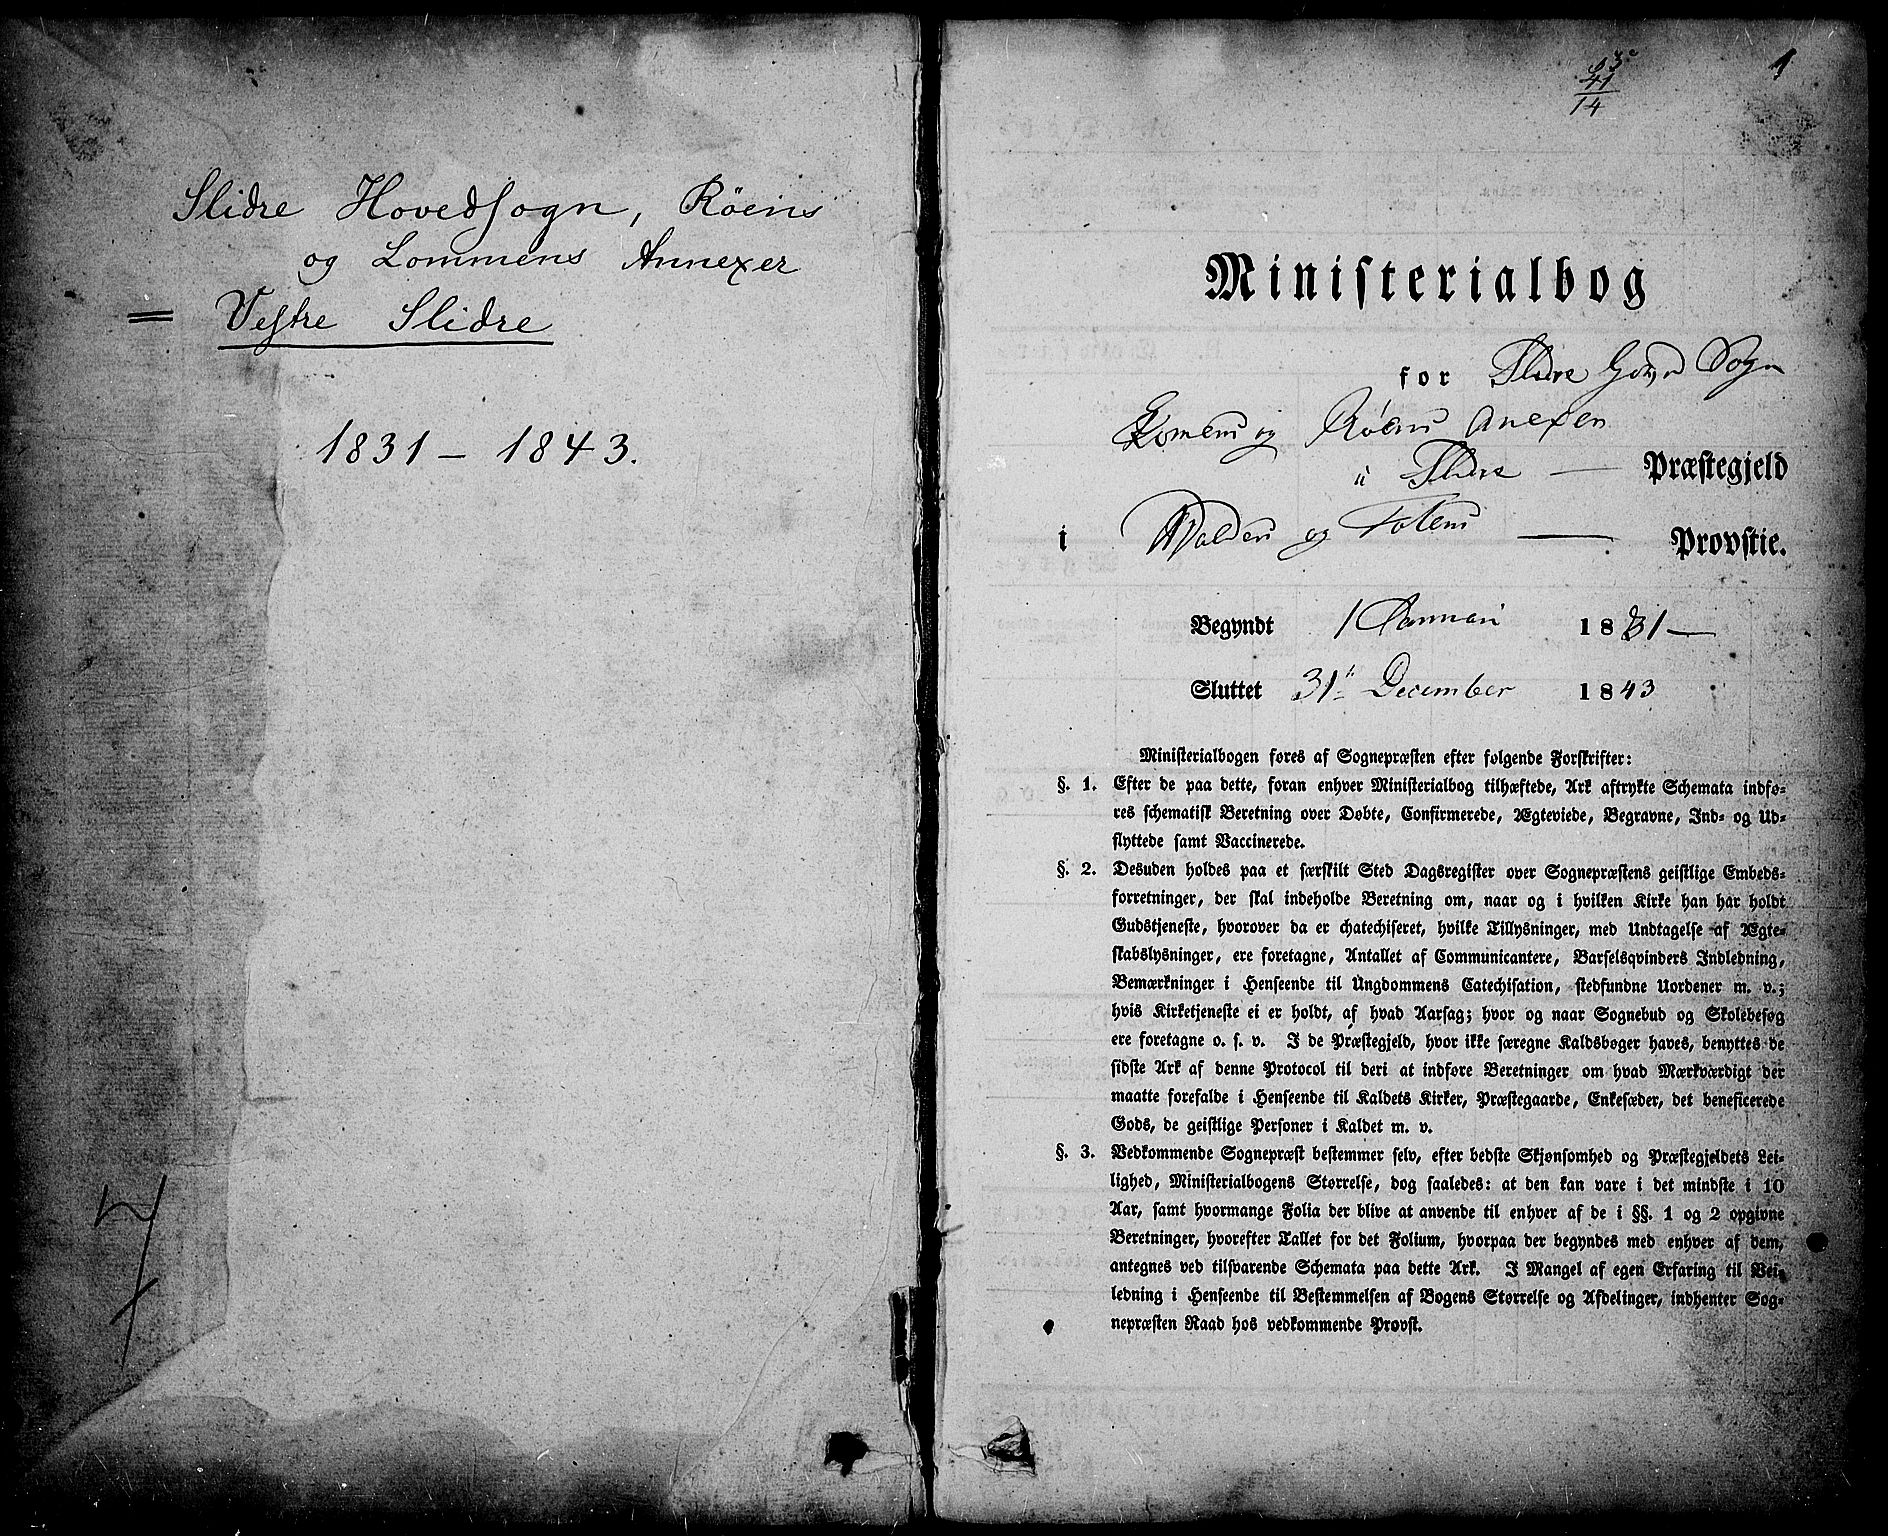 Slidre Hovedsogn, Røens
og Lommens Annexer
= Vestre Slidre
1831 – 1843.
7
1
41
14
Ministerialbog
for Slidre Hoved Sogn
Lomens og Røens Anexer
i Slidre — Præstegjeld
i Walders og Totens — Provstie.
Begyndt 1 Januari 1831 —
Sluttet 31t December 1843
Ministerialbogen føres af Sognepræsten efter følgende Forskrifter:
§. 1. Efter de paa dette, foran enhver Ministerialbog tilhæftede, Ark aftrykte Schemata indfø-
res schematisk Beretning over Døbte, Confirmerede, Ægteviede, Begravne, Ind- og Ud-
flyttede samt Vaccinerede.
§. 2. Desuden holdes paa et særskilt Sted Dagsregister over Sognepræstens geistlige Embeds-
forretninger, der skal indeholde Beretning om, naar og i hvilken Kirke han har holdt
Gudstjeneste, hvorover da er chatechiseret, hvilke Tillysninger, med Undtagelse af Ægte-
skabslysninger, ere foretagne, Antallet af Communicantere, Barselqvinders Indledning,
Bemærkninger i Henseende til Ungdommens Catechisation, stedfundne Uordener m. v.;
hvis Kirketjeneste ei er holdt, af hvad Aarsag; hvor og naar Sognebud og Skolebesøg
ere foretagne o. s. v. I de Præstegjeld, hvor ikke særegne Kaldsbøger haves, benyttes de
sidste Ark af denne Protocol til deri at indføre Beretninger om hvad Mærkværdigt der
maatte forefalde i Henseende til Kaldets Kirker, Præstegaarde, Enkesæder, det beneficerede
Gods, de geistlige Personer i Kaldet m. v.
§. 3. Vedkommende Sognepræst bestemmer selv, efter bedste Skjønsomhed og Præstegjeldets Lei-
lighed, Ministerialbogens Størrelse, dog saaledes: at den kan vare i det mindste i 10
Aar, samt hvormange Folia der blive at anvende til enhver af de i §§. 1 og 2 opgivne
Beretninger, hvorefter Tallet for det Folium, hvorpaa der begyndes med enhver af dem,
antegnes ved tilsvarende Schemata paa dette Ark. I Mangel af egen Erfaring til Vei-
ledning i Henseende til Bestemmelsen af Bogens Størrelse og Afdelinger, indhenter Sog-
nepræsten Raad hos vedkommende Provst.